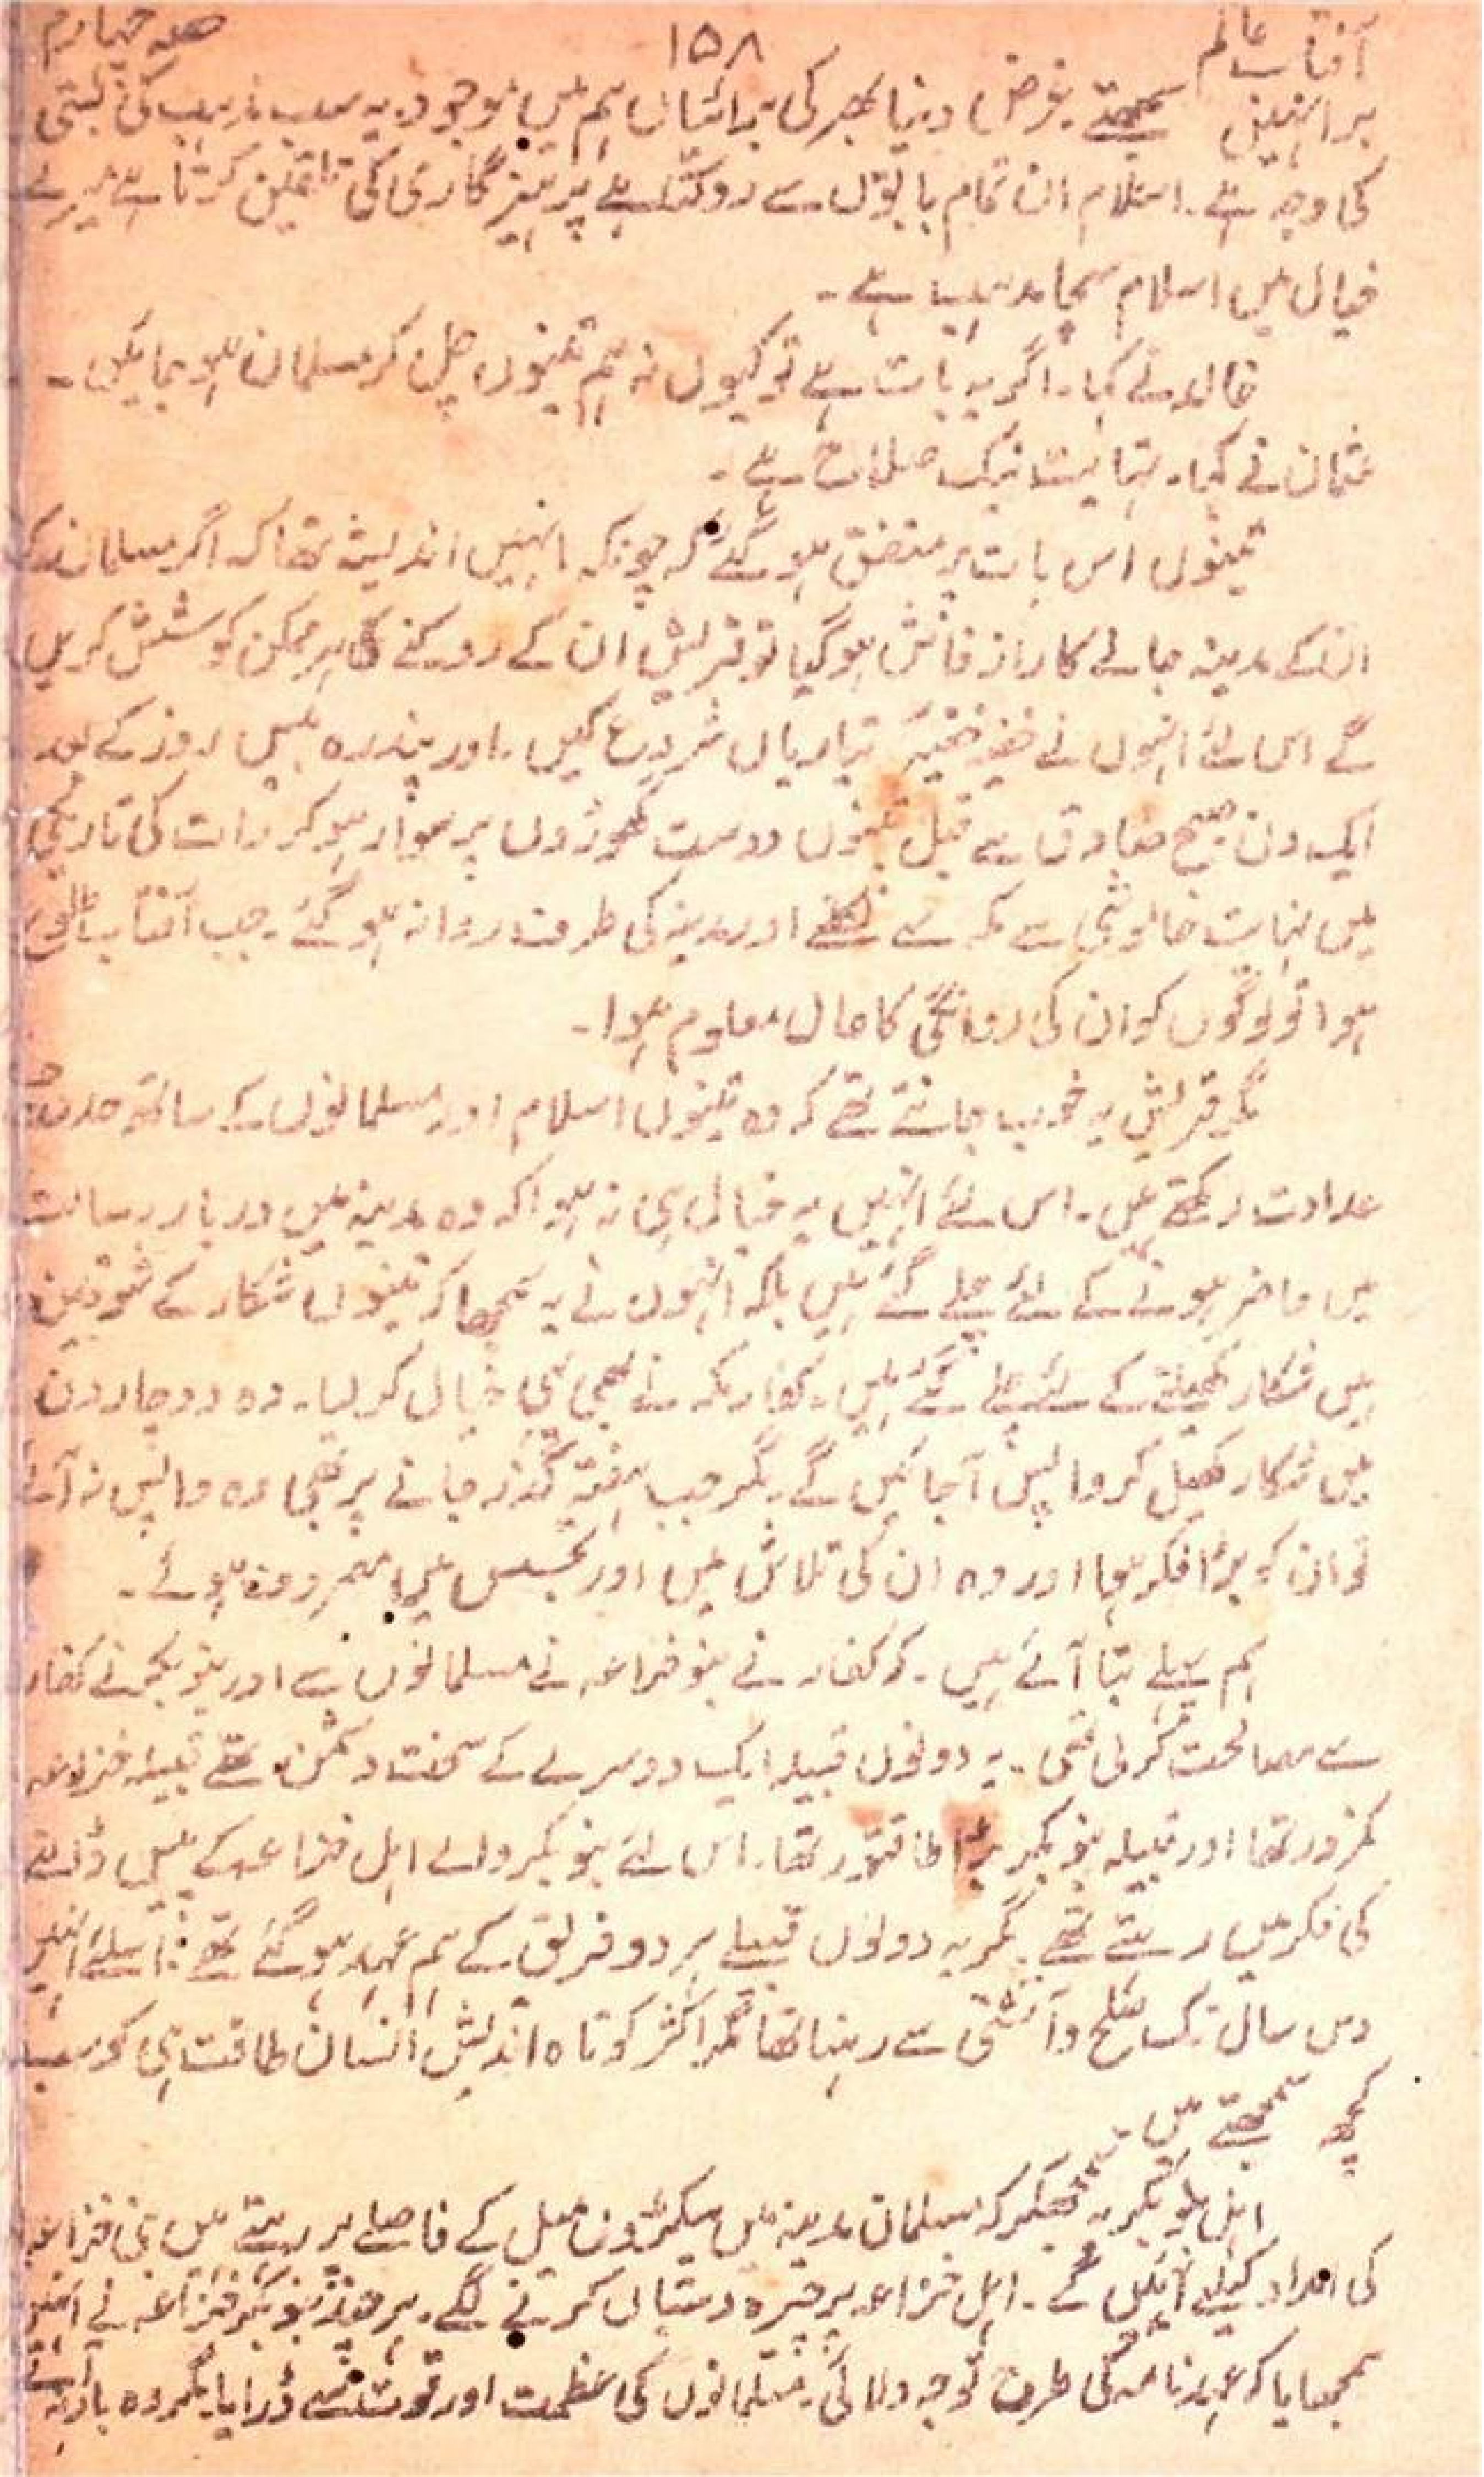 آفتاب عالم ۱۵۸ حصہ چہارم
برا نہیں سمجھتے غرض دنیا بھر کی برائیاں ہم میں موجود یہ سب مذہب کی پستی
کی وجہ ہے۔ اسلام ان تمام باتوں سے روکتا ہے پرہیزگاری کی تلقین کرتا ہے میرے
خیال میں اسلام سچا مذہب ہے۔
خالد نے کہا۔ اگر یہ بات ہے تو کیوں نہ ہم تینوں چل کر مسلمان ہو جائیں۔
عثمان نے کہا۔ نہایت نیک صلاح ہے۔
تینوں اس بات پر متفق ہو گئے کہ چونکہ انہیں اندیشہ تھا کہ اگر مسلمان
ان کے مدینہ جانے کا راز فاش ہو گیا تو قریش ان کے روکنے کی ہر ممکن کوشش کریں
گے اس لئے انہوں نے خفیہ خفیہ تیاریاں شروع کیں۔ اور پندرہ بیس روز کے بعد
ایک دن صبح صادق سے قبل تینوں دوست گھوڑوں پر سوار ہو کر رات کی تاریکی
میں نہایت خاموشی سے مکہ سے نکلے اور مدینہ کی طرف روانہ ہو گئے۔ جب آفتاب طلوع
ہوا تو لوگوں کو ان کی روانگی کا حال معلوم ہوا۔
مگر قریش یہ خوب جانتے تھے کہ وہ تینوں اسلام اور مسلمانوں کے ساتھ
عداوت رکھتے ہیں۔ اس لئے انہیں یہ خیال ہی نہ ہوا کہ وہ مدینہ میں دربار رسالت
میں حاضر ہونے کے لئے چلے گئے ہیں بلکہ انہوں نے یہ سمجھا کہ تینوں شکار کے شوقین
ہیں شکار کھیلنے کے لئے چلے گئے ہیں۔ کفار مکہ نے بھی یہی خیال کر لیا۔ وہ دو چار دن
میں شکار کھیل کر واپس آجائیں گے۔ مگر جب ہفتہ گذر جانے پر بھی وہ واپس نہ آئے
تو ان کو بڑا فکر ہوا اور وہ ان کی تلاش میں اور تجسس میں مصروف ہوئے۔
ہم پہلے بتا آئے ہیں۔ کہ کفار نے بنو خزاعہ نے مسلمانوں سے اور بنو بکر نے کفار
سے مصالحت کر لی تھی۔ یہ دونوں قبیلہ ایک دوسرے کے سخت دشمن تھے قبیلہ خزاعہ
کمزور تھا اور قبیلہ بنو بکر بڑا طاقتور تھا۔ اس لئے بنو بکر والے اہل خزاعہ کے پیس ڈالنے
کی فکر میں رہتے تھے۔ مگر یہ دونوں قبیلے ہر دو فریق کے ہم عہد ہو گئے تھے۔ اسلئے انہیں
دس سال تک صلح و آشتی سے رہنا تھا مگر اکثر کوتاہ اندیش انسان طاقت ہی کو سب
کچھ سمجھتے ہیں
اہل بنو بکر یہ سمجھکر کہ مسلمان مدینہ میں سیکڑوں میل کے فاصلے پر رہتے ہیں بنی خزاعہ
کی امداد کیلئے آئیں گے۔ اہل خزاعہ پر چیرہ دستیاں کرنے لگے۔ ہر چند بنو بکر خزاعہ نے انہیں
سمجھایا کہ عہدنامہ کی طرف توجہ دلائی۔ مسلمانوں کی عظمت اور قوت سے ڈرایا۔ مگر وہ باز نہ آئے